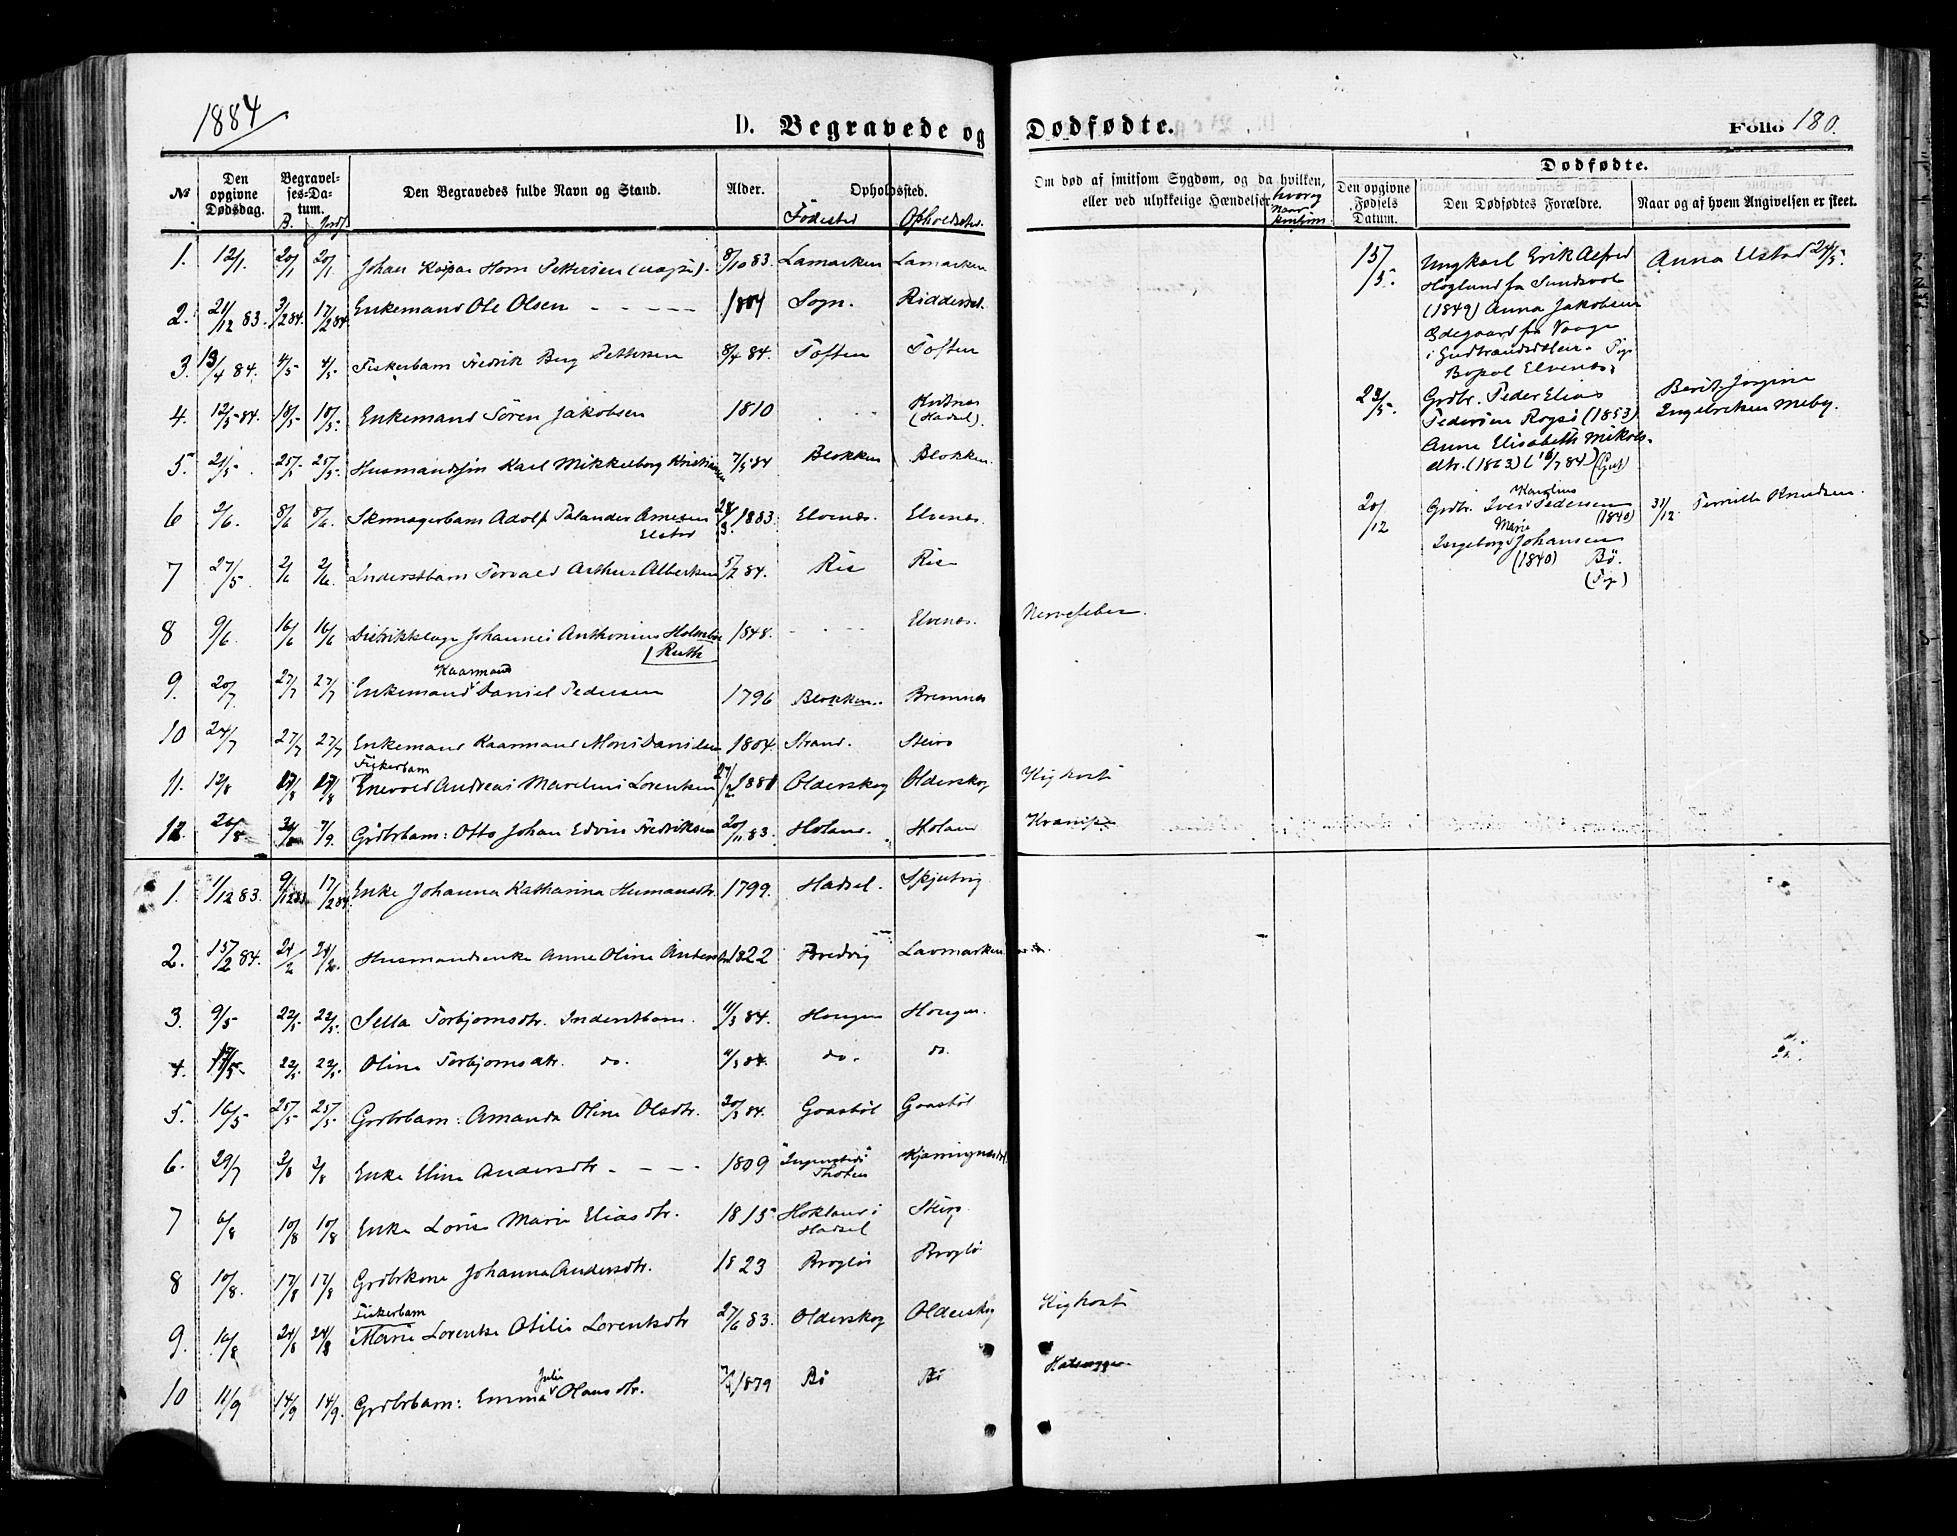 1884
D. Begravede og Dødfødte.
Folio 180.
№
Den opgivne Dødsdag.
Begravelses-Datum.
B. Jordf.
Den Begravedes fulde Navn og Stand.
Alder.
Opholdssted.
Fødested Opholdssted.
Om død af smitsom Sygdom, og da hvilken,
eller ved ulykkelige Hændelser
Dødfødte.
Den opgivne Fødsels Datum.
Den Dødfødtes Forældre.
Naar og af hvem Angivelsen er skeet.
1. 12/1. 20/1 20/1. Johan Kaspar Horn Pettersen 8/10 83. Lamarken Lamarken
2. 21/12 83. 3/2 84. 17/2 84. Enkemand Ole Olsen - - - - - Sogn. Riddersal.
3. 13/4 84. 4/5 4/5. Fiskerbarn Fredrik Berg Pettersen 8/4 84. Toften Toften
4. 12/5 84. 18/5 18/5. Enkemand Sören Jakobsen 1810 (Hadsel).
5. 21/5. 25/5 25/5. Husmandssøn Karl Mikkelborg Kristiansen 7/5 84 Blokken Blokken.
6 2/6. 8/6 8/6. Skomagerbarn Adolf Palander Arnesen Elstad 24/3. 1883. Elvenæs. Elvenæs.
7 27/5. 2/6 2/6. Inderstbarn Torvald Arthur Albertsen 5/2 84. Ris Ris
8 9/6. 16/6 16/6 Distriktslæge Johannes Anthonius Holmboe Ruth 1848. - - - Elvenæs. Nervefeber.
9. 20/7. 27/7 27/7 Enkemand Kaarmand Daniel Pedersen 1796 Blokken. Bremnes
10 24/7 27/7 27/7 Enkemand Kaarmand Mons Danielsen 1804. Strand. Steiro
11. 12/8 17/8 17/8 Fiskerbarn Enevold Andreas Marelius Lorentsen 27/2 1881 Olderskog Olderskog Kighoste
12. 26/8 7/9. Grdbrbarn: Otto Johan Edvin Fredriksen 20/11 83. Holand. Holand Krampe
1. 1/12 83. 9/12 83. 17/2 84. Enke Johanna Katharina Humansdtr. 1799. Hadsel. Skjulvig
2. 15/2 84. 24/2 24/2. Husmandsenke Anne Oline Andersdtr 1822 Bredvig Lavmarken
3. 9/5 22/5. 22/5. Sella Torbjornsdtr. Inderstbarn. 11/3 84. Haugen Haugen.
4. 17/5. 22/5. 22/5. Oline Torbjornsdtr. do. 11/3 84. do. do.
5. 16/5 25/5 25/5. Grdbrbarn: Amanda Oline Olsdtr. 20/3 84. Gaasbøl Gaasbøl
6. 29/7 3/8 3/8 Enke Eline Andersdtr. - - - - 1809 Thoten
7 6/8 10/8 10/8 Enke Lovise Marie Eliasdtr. 1815 Hokland i Hadsel Steiro
8 10/8. 17/8 17/8 Grdbrkone Johanna Andersdtr. 1823 Brogløs Brogløs
9. 16/8 24/8 24/8 Fiskerbarn Marie Lorentse Otilie Lorentsdtr 27/6 83. Olderskog Olderskog Kighoste
10 11/9 14/9 14/9. Grdbrbarn: Emma Julie Olausdtr. 1879 Bø Bø
15/5. Ungkarl Erik Alfred
Høglund fra Sundsvol
(1849) Anna Jakobsen
Ødegaard fra Vaage
i Gudbrandsdalen. Pige
Bopæl Elvenæs.
Anna Elstad 24/5.
23/5. Grdbr. Peder Elias
Pedersen Rogsø (1853)
Anne Elisabeth Mikals-
dtr. (1863) (16/7 84) (Gut)
Berit Jorgine
Ingebrigtsen Meby.
20/12 Grdbr. Iver Karolius Pedersen (1840)
Ingeborg Marie Johansen
(1840) Bø.
(Pige)
31/12. Pernille Knudsen.